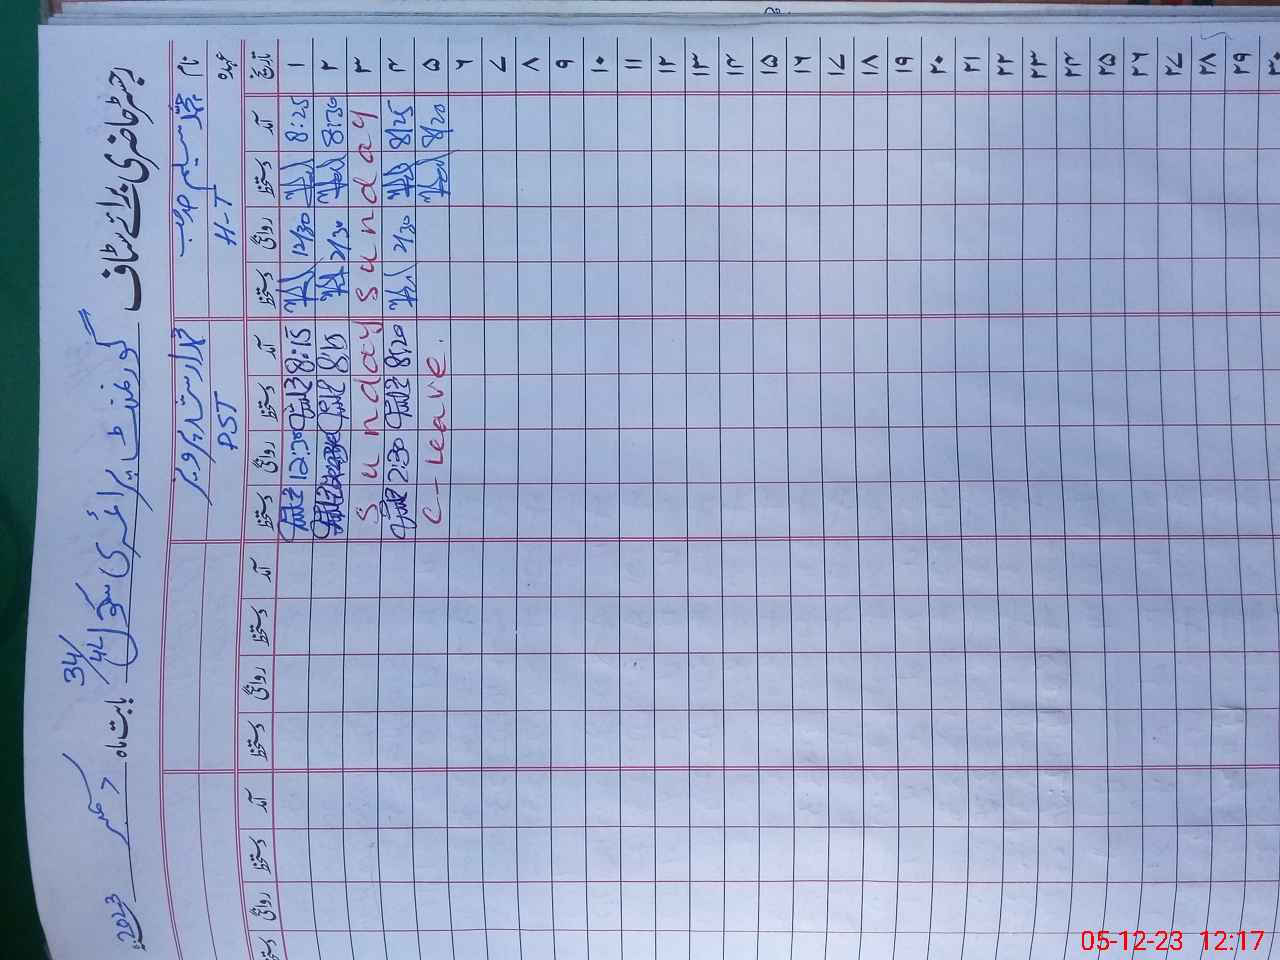 رجسٹر حاضری برائے سٹاف گورنمنٹ پرائمری سکول 34/4L بابت ماہ دسمبر 2023ء
نام محمد سلیم
عہدہ H-T PST
تاریخ آمد دستخط روانگی دستخط آمد دستخط روانگی دستخط آمد دستخط روانگی دستخط آمد دستخط روانگی دستخط
۱ 8:25 12/30 8:15 12:30
۲ 8:30 2/30 8:15
۳ Sunday Sunday
۴ 8/25 2/30 8:20 2:30
۵ 8/20 C-Leave.
۶
۷
۸
۹
۱۰
۱۱
۱۲
۱۳
۱۴
۱۵
۱۶
۱۷
۱۸
۱۹
۲۰
۲۱
۲۲
۲۳
۲۴
۲۵
۲۶
۲۷
۲۸
۲۹
۳۰
05-12-23 12:17